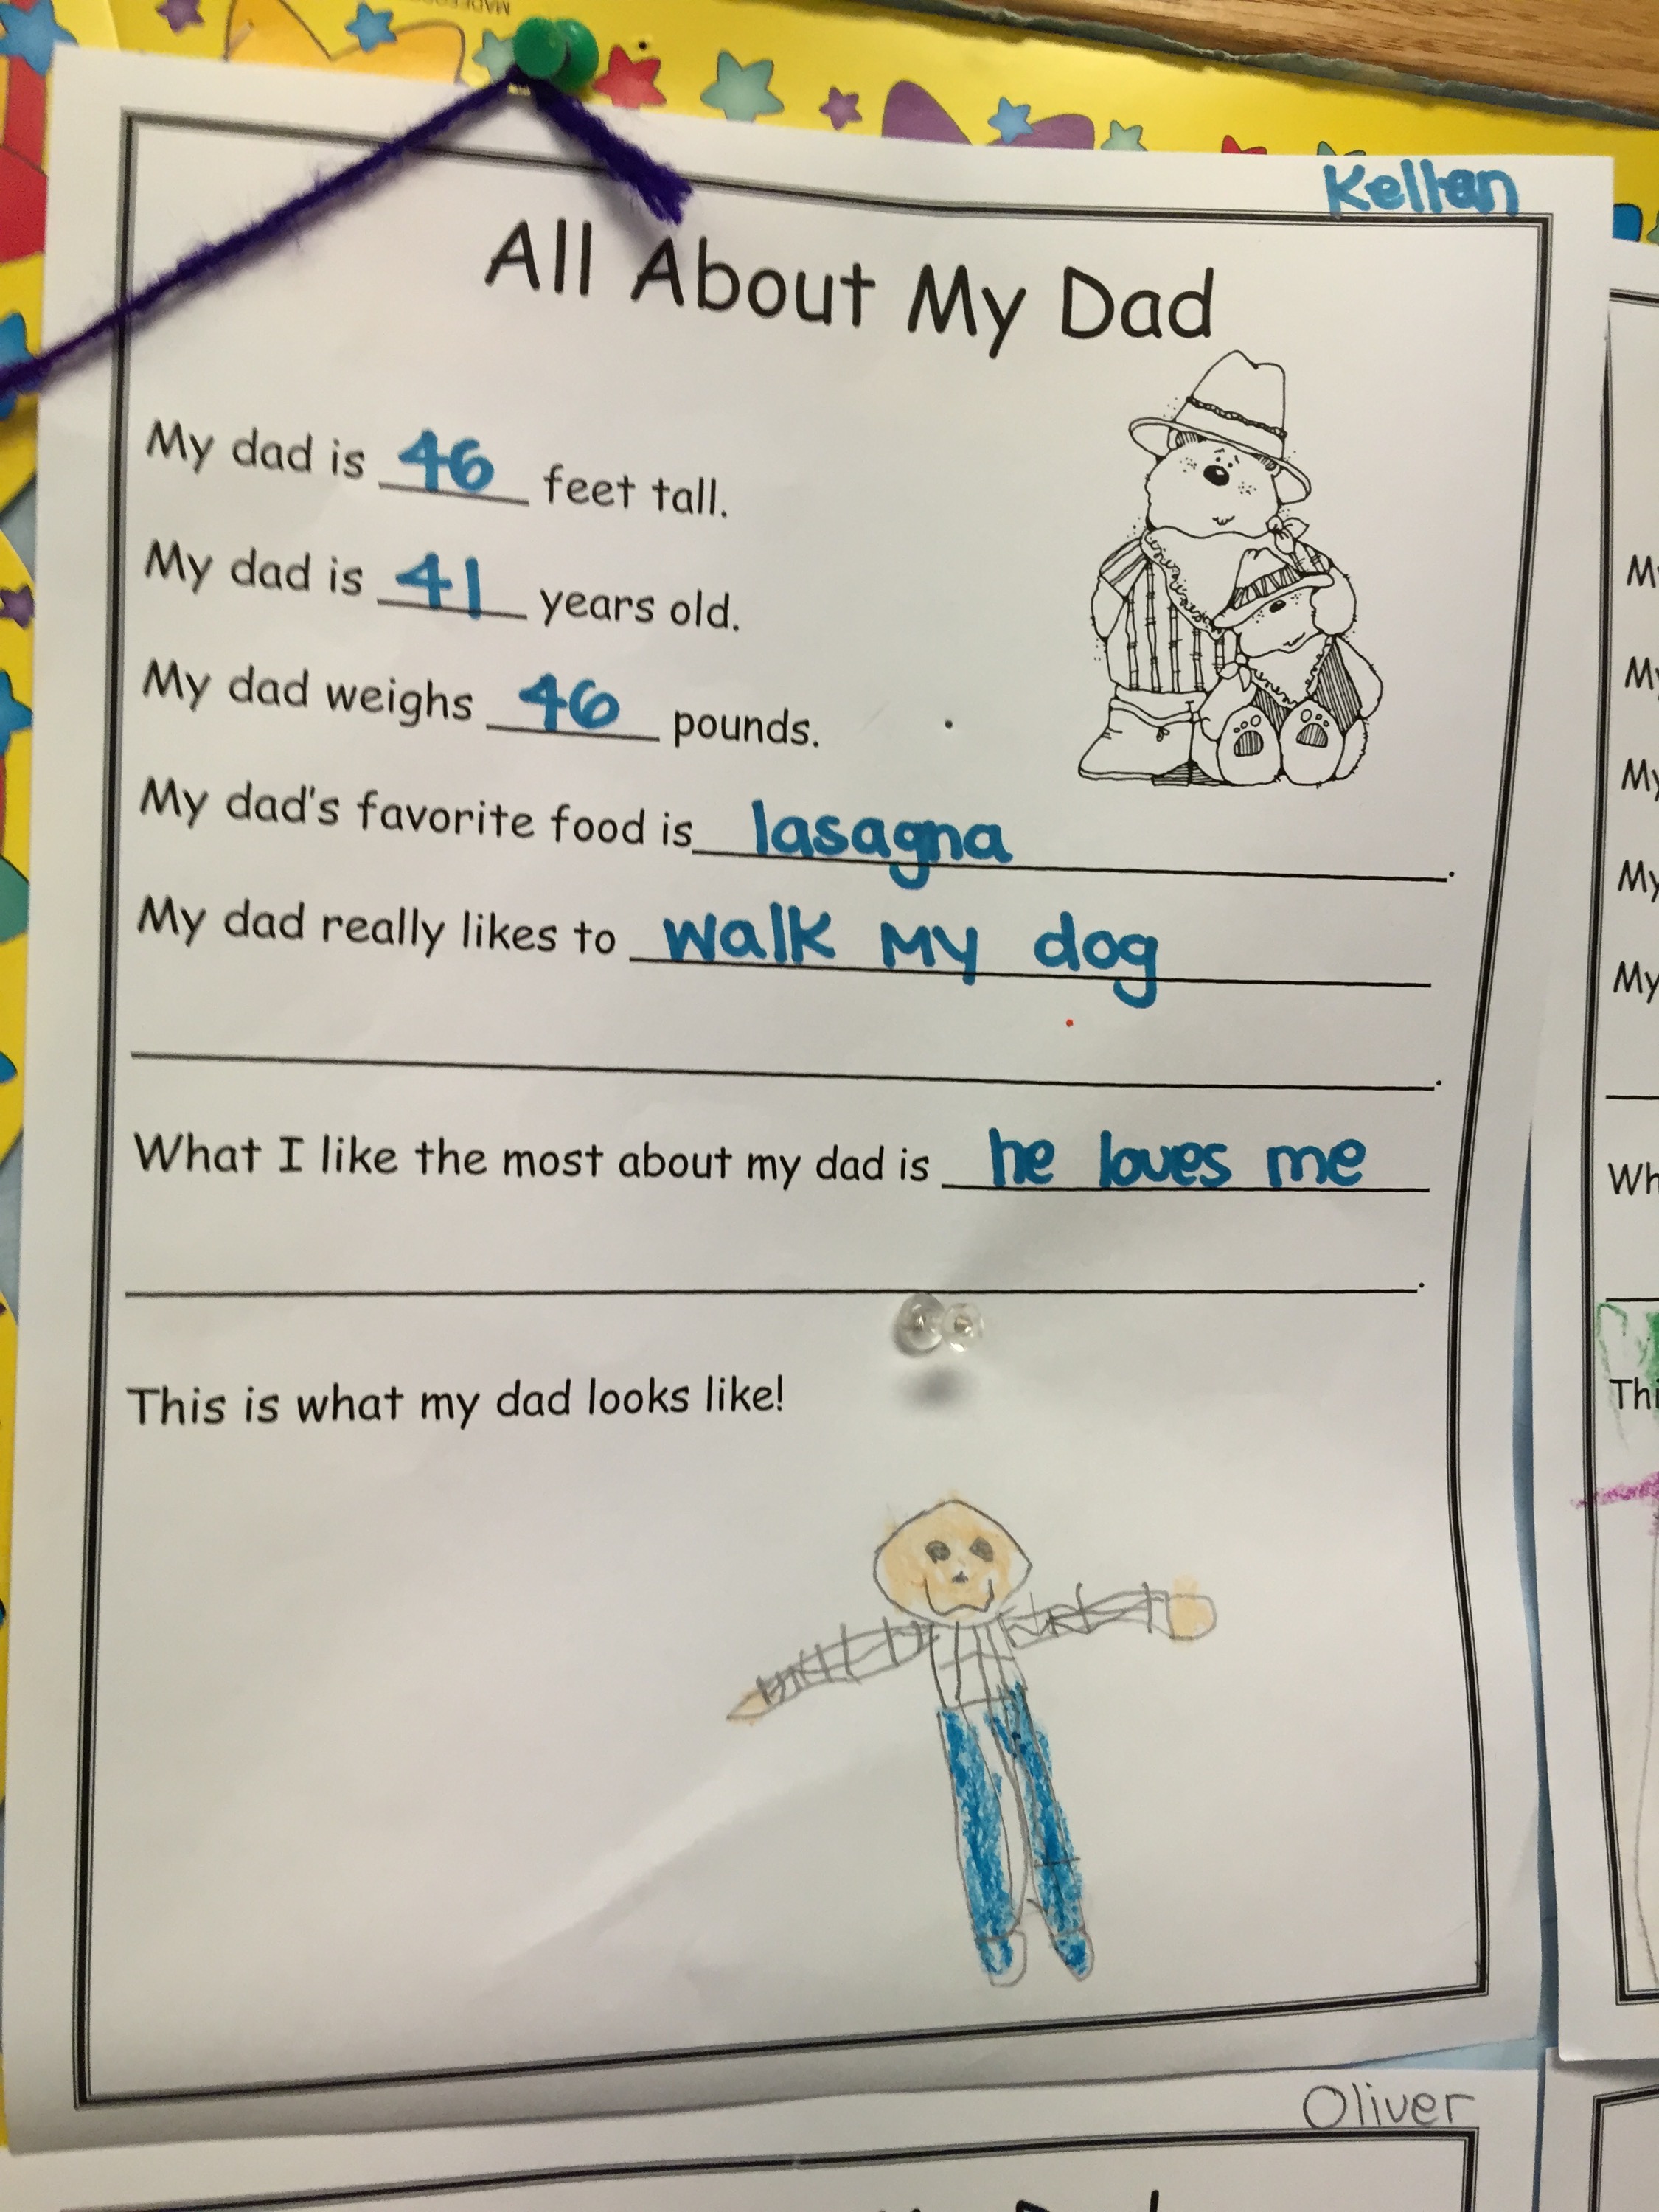 Kellan
All About My Dad
My dad is 46 feet tall.
My dad is 41 years old.
My dad weighs 46 pounds.
My dad's favorite food is lasagna.
My dad really likes to walk my dog
.
What I like the most about my dad is he loves me
.
This is what my dad looks like!
Oliver
My
My
My
My
My
Wh
Thi